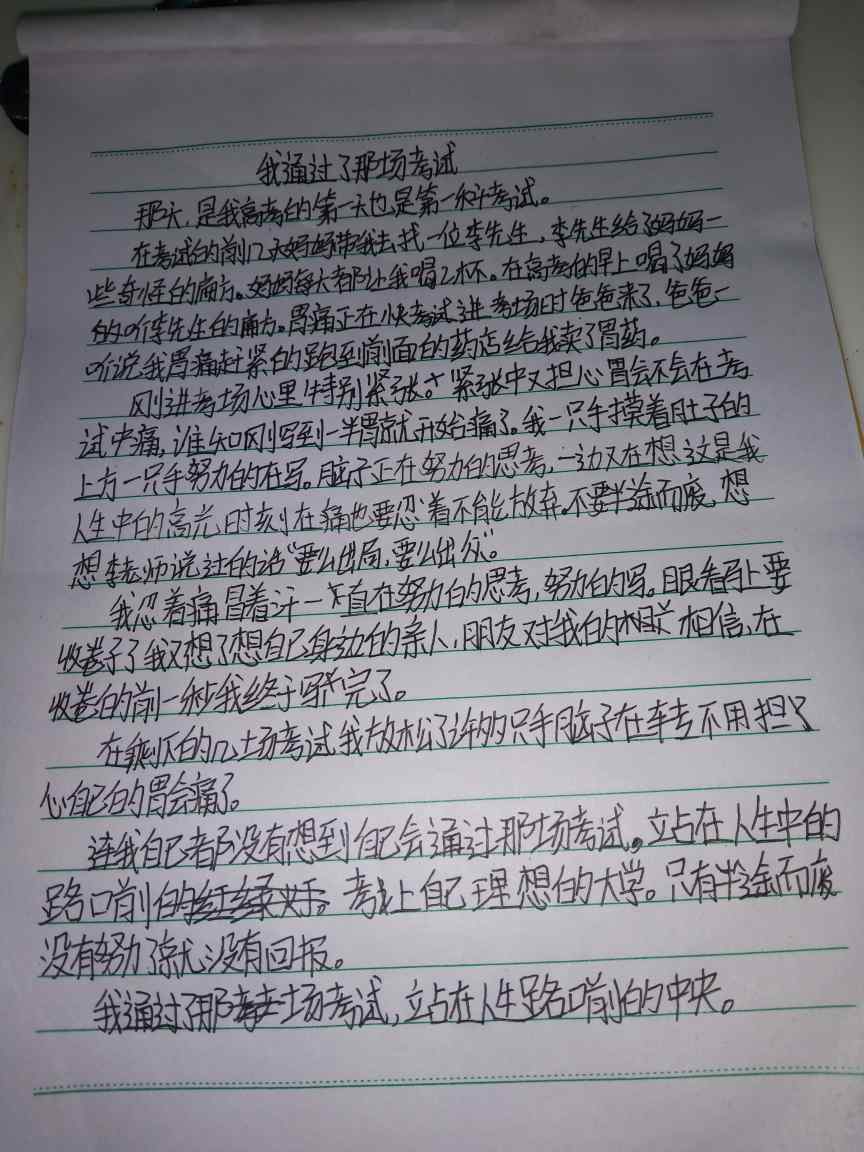 我通过了那场考试
那天,是我高考的第一天也是第一科考试。
在考试的前几天妈妈带我去找一位李先生,李先生给了妈妈一
些奇怪的方。妈妈每天都让我喝乙杯。在高考的早上喝了妈妈
的听李先生的方。胃痛正在快考试进考场时爸爸来了,爸爸一
听说我胃痛赶紧的跑到前面的药店给我卖了胃药。
刚进考场心里特别紧张。紧张中又担心胃会不会在考
试中痛,谁知刚写到一半胃就开始痛了。我一只手摸着肚子的
上方一只手努力的在写。脑子正在努力的思考,一边又在想这是我
人生中的高光时刻在痛也要忍着不能放弃。不要半途而废,想
想李老师说过的话“要么出局,要么出众”。
我忍着痛冒着汗一直在努力的思考,努力的写。眼看马上要
收卷子了我又想了想自己身边的亲人,朋友对我的相信,在
收卷的前一秒我终于写完了。
在剩下的几场考试我放松了许多只手脑子在转不用担
心自己的胃会痛了。
连我自己都没有想到自己会通过那场考试。站在人生中的
路口前的 考上自己理想的大学。只有半途而废
没有努力了就没有回报。
我通过了那场考试,站在人生路口前的中央。